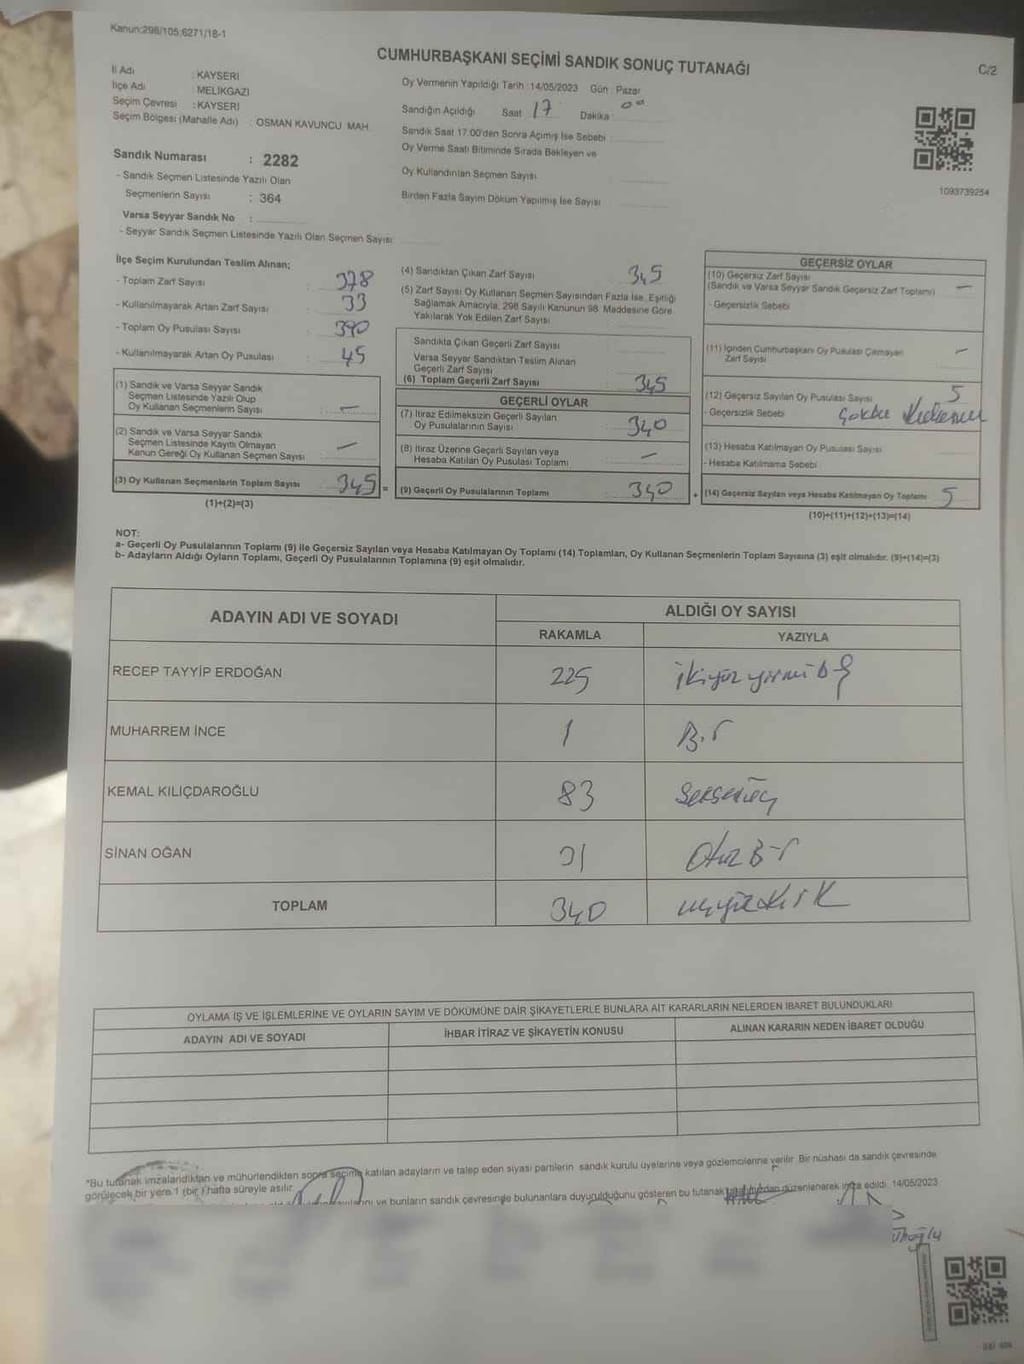 Kanun:298/105;6271/18-1
CUMHURBAŞKANI SEÇİMİ SANDIK SONUÇ TUTANAĞI
C/2
İl Adı : KAYSERİ
İlçe Adı : MELİKGAZİ
Seçim Çevresi : KAYSERİ
Seçim Bölgesi (Mahalle Adı) : OSMAN KAVUNCU MAH.
Sandık Numarası : 2282
- Sandık Seçmen Listesinde Yazılı Olan
Seçmenlerin Sayısı : 364
Varsa Seyyar Sandık No :
- Seyyar Sandık Seçmen Listesinde Yazılı Olan Seçmen Sayısı:
Oy Vermenin Yapıldığı Tarih :14/05/2023 Gün : Pazar
Sandığın Açıldığı Saat 17 Dakika : 00
Sandık Saat 17:00'den Sonra Açımış İse Sebebi :
Oy Verme Saati Bitiminde Sırada Bekleyen ve
Oy Kullandırılan Seçmen Sayısı
Birden Fazla Sayım Döküm Yapılmış İse Sayısı
1093739254
İlçe Seçim Kurulundan Teslim Alınan;
- Toplam Zarf Sayısı : 378
- Kullanılmayarak Artan Zarf Sayısı : 33
- Toplam Oy Pusulası Sayısı : 390
- Kullanılmayarak Artan Oy Pusulası : 45
(1) Sandık ve Varsa Seyyar Sandık
Seçmen Listesinde Yazılı Olup
Oy Kullanan Seçmenlerin Sayısı : —
(2) Sandık ve Varsa Seyyar Sandık
Seçmen Listesinde Kayıtlı Olmayan
Kanun Gereği Oy Kullanan Seçmen Sayısı : —
(3) Oy Kullanan Seçmenlerin Toplam Sayısı 345 =
(1)+(2)=(3)
(4) Sandıktan Çıkan Zarf Sayısı 345
(5) Zarf Sayısı Oy Kullanan Seçmen Sayısından Fazla İse, Eşitliği
Sağlamak Amacıyla, 298 Sayılı Kanunun 98. Maddesine Göre
Yakılarak Yok Edilen Zarf Sayısı
Sandıkta Çıkan Geçerli Zarf Sayısı
Varsa Seyyar Sandıktan Teslim Alınan
Geçerli Zarf Sayısı
(6) Toplam Geçerli Zarf Sayısı 345
GEÇERLİ OYLAR
(7) İtiraz Edilmeksizin Geçerli Sayılan
Oy Pusulalarının Sayısı 340
(8) İtiraz Üzerine Geçerli Sayılan veya
Hesaba Katılan Oy Pusulası Toplamı —
(9) Geçerli Oy Pusulalarının Toplamı 340 +
GEÇERSİZ OYLAR
(10) Geçersiz Zarf Sayısı
(Sandık ve Varsa Seyyar Sandık Geçersiz Zarf Toplamı) —
- Geçersizlik Sebebi
(11) İçinden Cumhurbaşkanı Oy Pusulası Çıkmayan
Zarf Sayısı —
(12) Geçersiz Sayılan Oy Pusulası Sayısı 5
- Geçersizlik Sebebi
(13) Hesaba Katılmayan Oy Pusulası Sayısı
- Hesaba Katılmama Sebebi
(14) Geçersiz Sayılan veya Hesaba Katılmayan Oy Toplamı 5
(10)+(11)+(12)+(13)=(14)
NOT:
a- Geçerli Oy Pusulalarının Toplamı (9) ile Geçersiz Sayılan veya Hesaba Katılmayan Oy Toplamı (14) Toplamları, Oy Kullanan Seçmenlerin Toplam Sayısına (3) eşit olmalıdır. (9)+(14)=(3)
b- Adayların Aldığı Oyların Toplamı, Geçerli Oy Pusulalarının Toplamına (9) eşit olmalıdır.
ADAYIN ADI VE SOYADI
ALDIĞI OY SAYISI
RAKAMLA YAZIYLA
RECEP TAYYİP ERDOĞAN 225 ikiyüz yirmi beş
MUHARREM İNCE 1 Bir
KEMAL KILIÇDAROĞLU 83 Seksenüç
SİNAN OĞAN 31 Otuz Bir
TOPLAM 340 üçyüz kırk
OYLAMA İŞ VE İŞLEMLERİNE VE OYLARIN SAYIM VE DÖKÜMÜNE DAİR ŞİKAYETLERLE BUNLARA AİT KARARLARIN NELERDEN İBARET BULUNDUKLARI
ADAYIN ADI VE SOYADI İHBAR İTİRAZ VE ŞİKAYETİN KONUSU ALINAN KARARIN NEDEN İBARET OLDUĞU
*Bu tutanak imzalandıktan ve mühürlendikten sonra seçime katılan adayların ve talep eden siyasi partilerin sandık kurulu üyelerine veya gözlemcilerine verilir. Bir nüshası da sandık çevresinde
görülecek bir yere 1 (bir) hafta süreyle asılır.
ve bunların sandık çevresinde bulunanlara duyurulduğunu gösteren bu tutanak düzenlenerek imza edildi. 14/05/2023